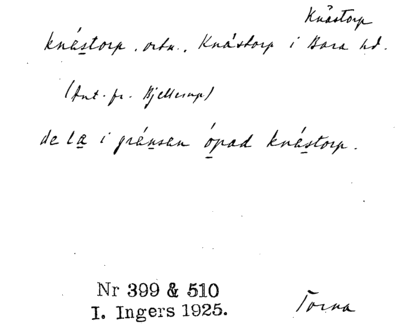 Knästorp
knástorp, ortn., Knástorp i Bara hd.
(Ant. fr. Bjellerup)
de læ i gránsan ópad knástorp.
Nr 399 & 510
I. Ingers 1925.
Torna